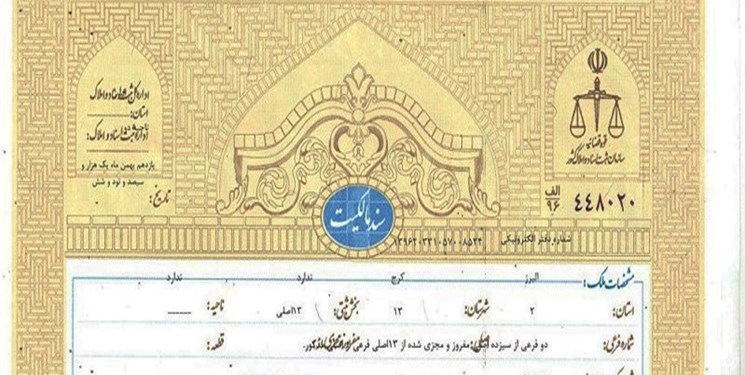 اداره کل ثبت اسناد و املاک
استان:
اداره ثبت اسناد و املاک:
یازدهم بهمن ماه یک هزار و
سیصد و نود و شش
تاریخ:
قوه قضائیه
سازمان ثبت اسناد و املاک کشور
الف
۹۶
۴۴۸۰۲۰
سند مالکیت
شماره دفتر الکترونیکی: ۱۳۹۶۲۰۳۳۱۰۵۷۰۰۸۵۲۴
مشخصات ملک:
البرز کرج ندارد ندارد
استان: شهرستان: بخش ثبتی: ناحیه:
۲ ۱۳ ۱۳اصلی
شماره فرعی: دو فرعی از سیزده اصلی مفروز و مجزی شده از ۱۳اصلی فرعی از قطعه: